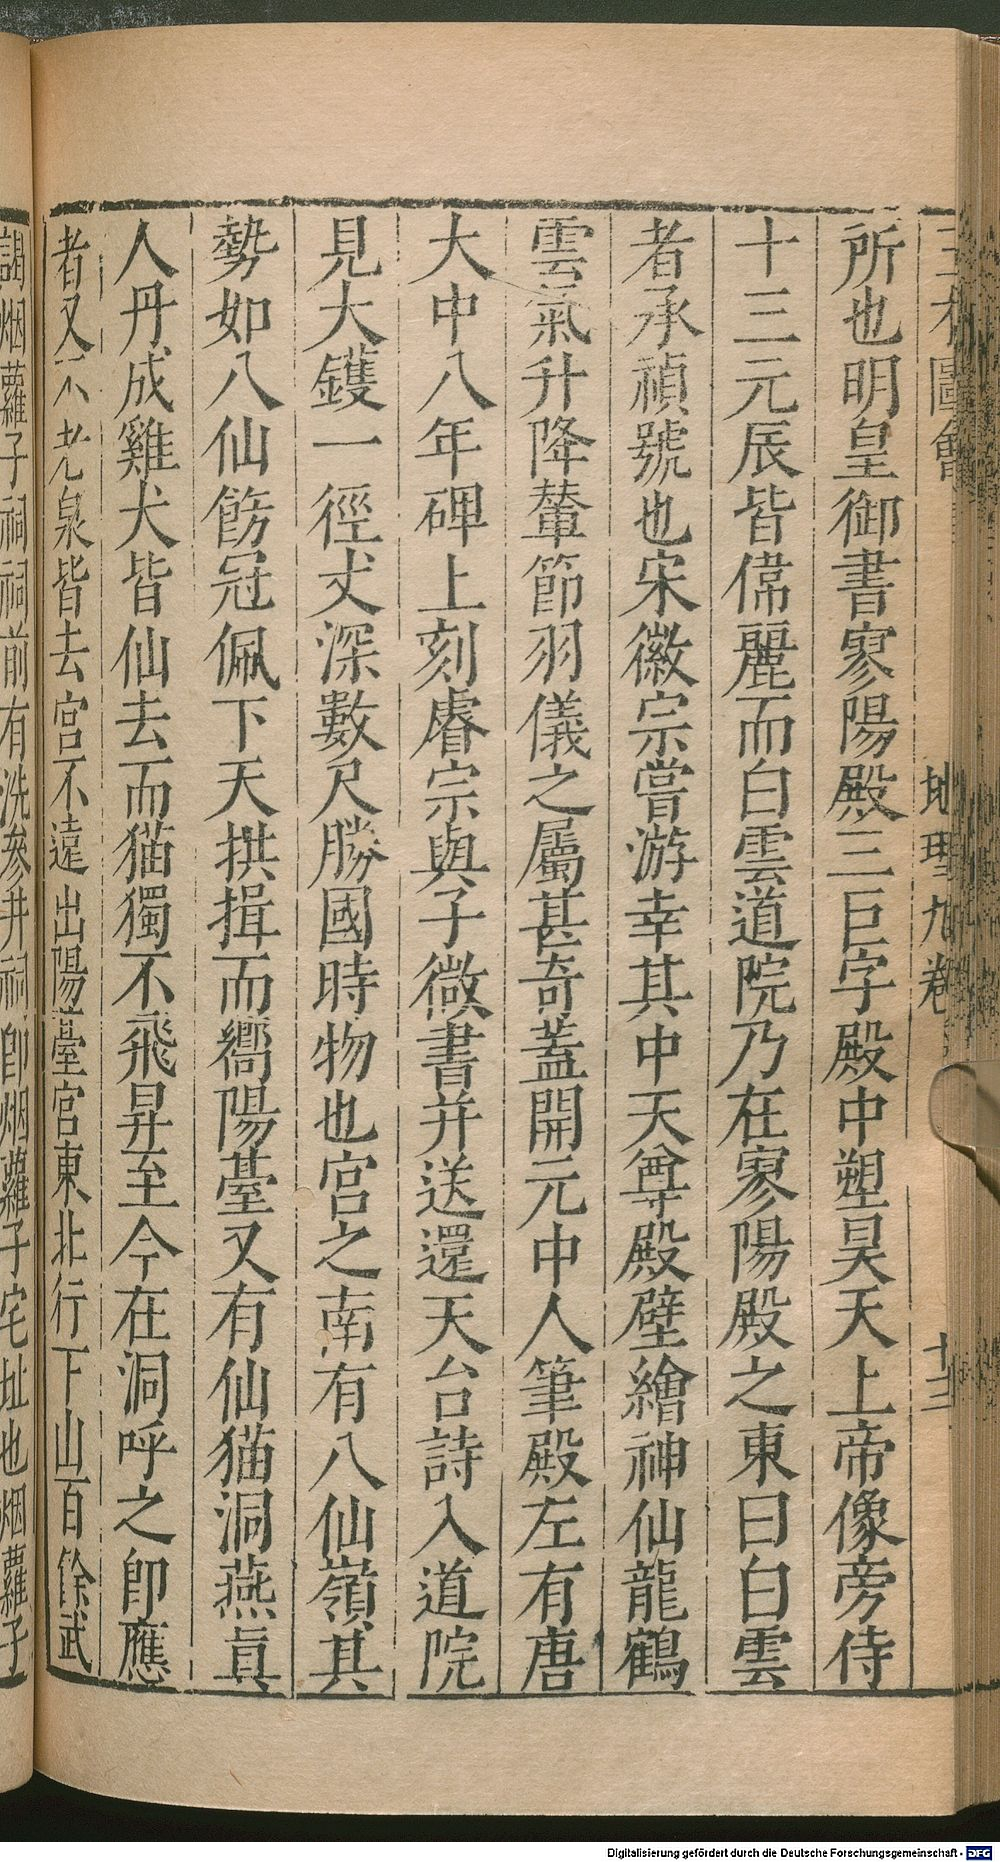 三才圖會 地理九卷 十三
所也明皇御書寥陽殿三巨字殿中塑昊天上帝像旁侍
十三元辰皆偉麗而白雲道院乃在寥陽殿之東曰白雲
者承禎號也宋徽宗嘗游幸其中天尊殿壁繪神仙龍鶴
雲氣升降輦節羽儀之屬甚奇蓋開元中人筆殿左有唐
大中八年碑上刻睿宗與子微書并送還天台詩入道院
見大鑊一徑丈深數尺勝國時物也宮之南有八仙嶺其
勢如八仙飭冠佩下天拱揖而嚮陽臺又有仙猫洞燕眞
人丹成雞犬皆仙去而猫獨不飛昇至今在洞呼之卽應
者又不老泉皆去宮不遠出陽臺宮東北行下山百餘武
謁烟蘿子祠祠前有洗參井祠卽烟蘿子宅址也烟蘿子
Digitalisierung gefördert durch die Deutsche Forschungsgemeinschaft - DFG